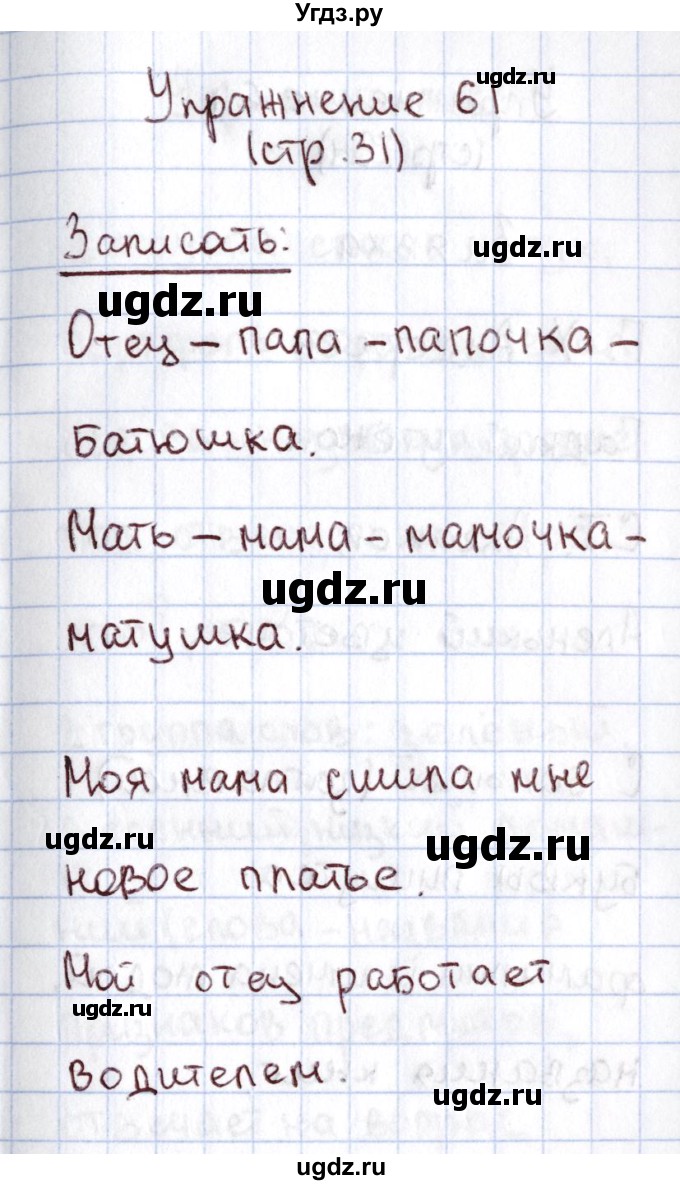 Угдз.ру
ugdz.ru
Упражнение 61
(стр.31)
Записать:
ugdz.ru
ugdz.ru
Отец – папа – папочка –
батюшка.
Мать – мама – мамочка –
ugdz.ru
матушка.
Моя мама сшила мне
ugdz.ru
ugdz.ru
новое платье.
Мой отец работает
ugdz.ru
водителем.
ugdz.ru
ugdz.ru